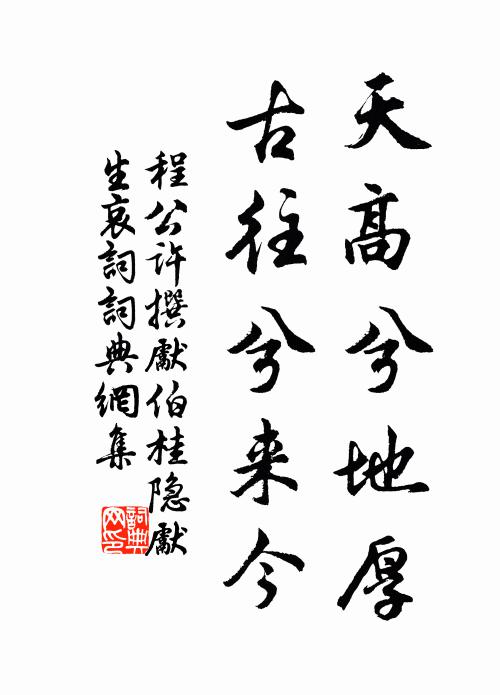 天高兮地厚
古往兮来今
程公许撰獻伯桂隐獻
生哀詞詞典網集
詞典网印